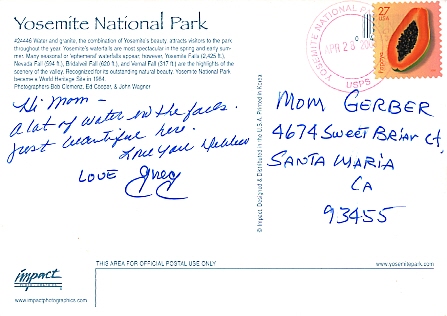 Yosemite National Park
#24446 Water and granite, the combination of Yosemite's beauty, attracts visitors to the park
throughout the year. Yosemite's waterfalls are most spectacular in the spring and early sum-
mer. Many seasonal or 'ephemeral' waterfalls appear; however, Yosemite Falls (2,425 ft.),
Nevada Fall (594 ft.), Bridalveil Fall (620 ft.), and Vernal Fall (317 ft.) are the highlights of the
scenery of the valley. Recognized for its outstanding natural beauty, Yosemite National Park
became a World Heritage Site in 1984.
Photographers Bob Clemenz, Ed Cooper, & John Wagner
Hi Mom -
A lot of water in the falls.
Just beautiful here.
Love you Debbie
LOVE Greg
© Impact, Designed & Distributed in the U.S.A. Printed in Korea
YOSEMITE NATIONAL
APR 28
USPS
27
USA
Papaya
MOM GERBER
4674 SWEET BRIAR Ct.
SANTA MARIA
CA
93455
impact
www.impactphotographics.com
THIS AREA FOR OFFICIAL POSTAL USE ONLY
www.yosemitepark.com